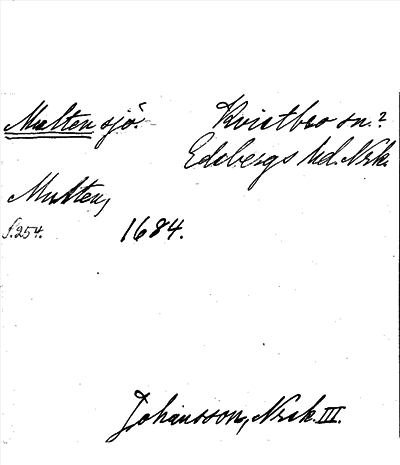 Multen sjö. Kvistbro sn.?
Edsbergs hd. Nrk.
Multen,
s. 254. 1684.
Johansson, Nrk. III.